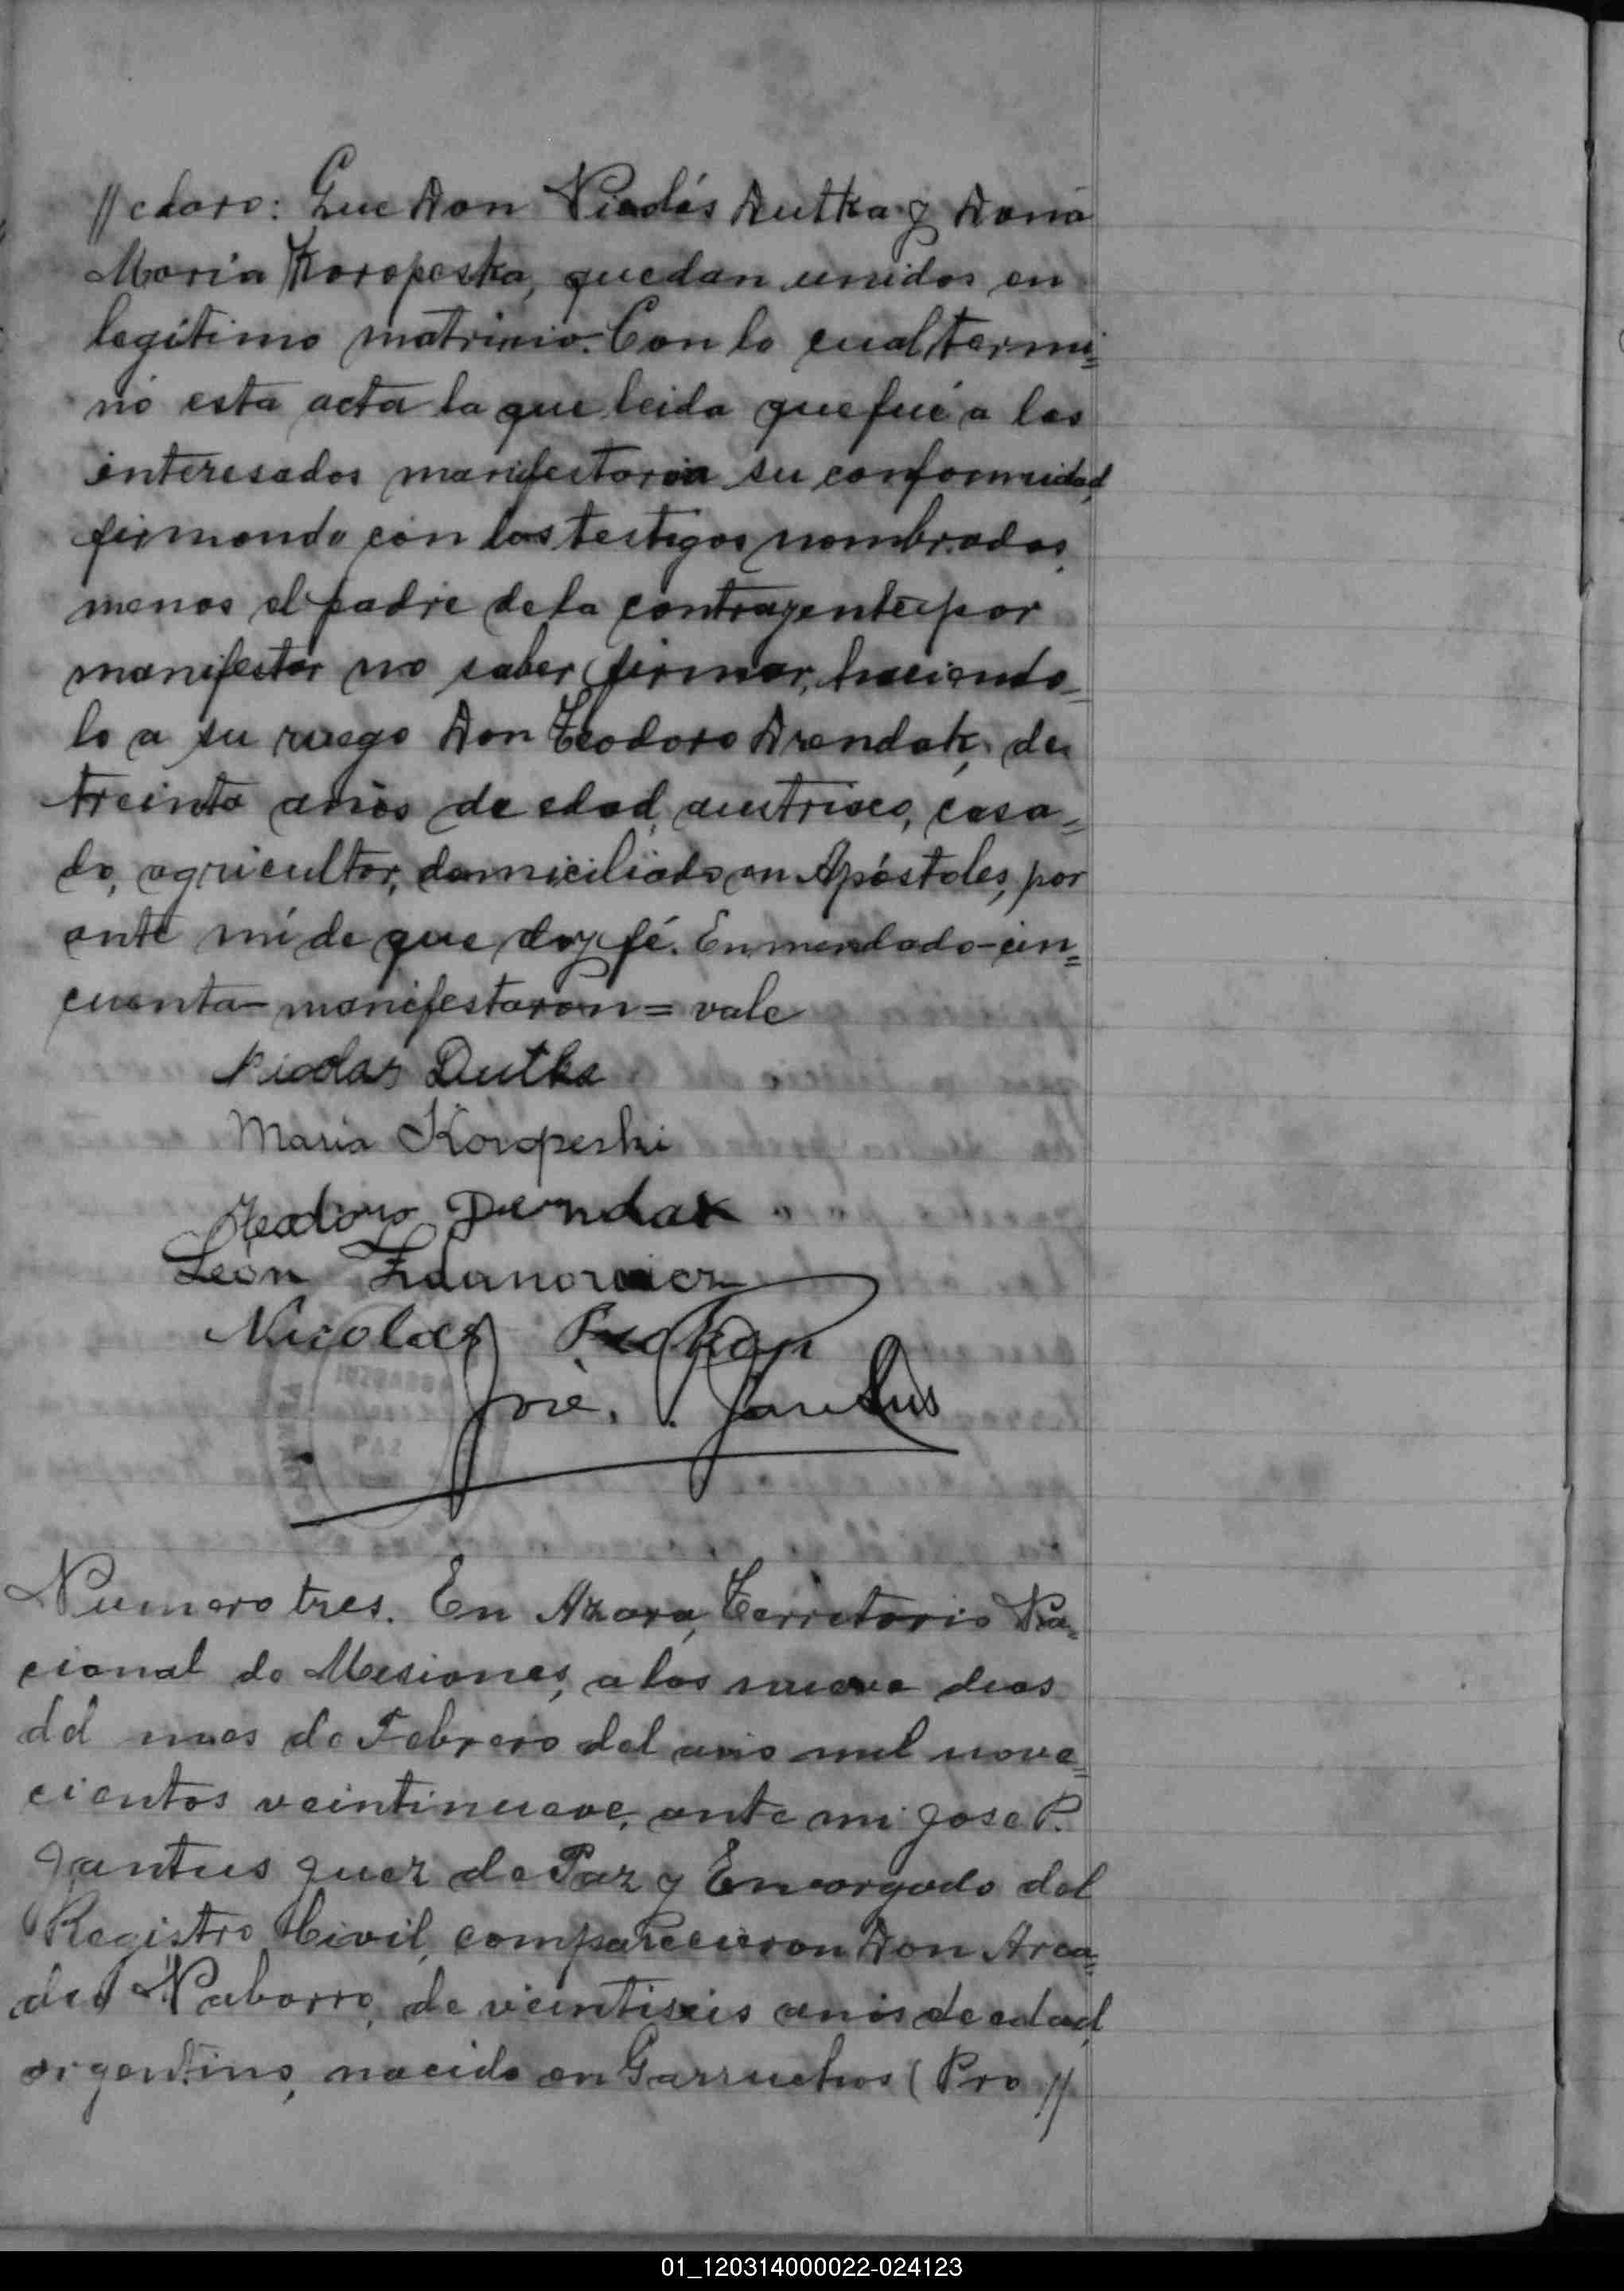 //claro: Que Don Nicolás Dutka y Dona
Maria Koropeska, quedan unidos en
legítimo matrimio. Con lo cual termi=
nó esta acta la que leida que fué a los
interesados manifestaron su conformidad,
firmando con los testigos nombrados,
menos el padre de la contrayente por
manifestar no saber firmar, haciendo-
lo a su ruego Don Teodoro Drendak, de
treinta años de edad, austriaco, casa=
do, agricultor, domiciliado en Apóstoles, por
ante mí de que doy fé. Enmendado-cin=
cuenta-manifestaron=vale
Nicolas Dutka
Maria Koropeski
Teodoro
León Zdanowicz
Nicolas
José P. Jantus
Numero tres. En Azara, Territorio Na=
cional de Misiones, a los nueve dias
del mes de Febrero del año mil nove=
cientos veintinueve, ante mi Jose P.
Jantus Juez de Paz y Encargado del
Registro Civil, comparecieron Don Arca=
dio Naborro, de veintiseis años de edad,
argentino, nacido en Garruchos (Pro //
01_120314000022-024123